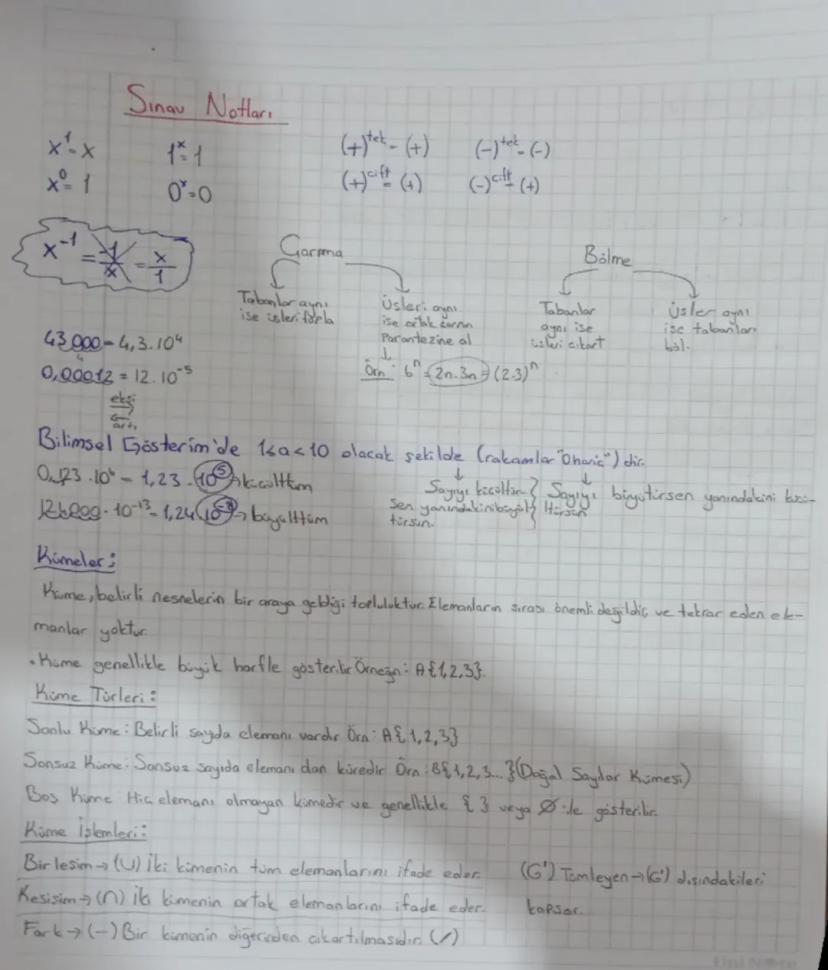 Sınav Notları
x¹=x 1ˣ=1 (+)ᵗᵉᵏ=(+) (-)ᵗᵉᵏ=(-)
x⁰=1 0ˣ=0 (+)ᶜⁱᶠᵗ=(+) (-)ᶜⁱᶠᵗ=(+)
x⁻¹ = -1/x = x/1
Çarpma Bölme
Tabanlar aynı
ise üsleri topla
Üsleri aynı
ise ortak
Parantezine al
↓
Örn: 6ⁿ=2n.3n=(2.3)ⁿ
Tabanlar
aynı ise
üsleri çıkart
Üsler aynı
ise tabanları
böl.
43000=4,3.10⁴
4
0,00012=12.10⁻⁵
eksi
artı
Bilimsel Gösterim'de 1≤a<10 olacak şekilde (rakamlar "0 hariç") dir.
0,123.10⁶=1,23.10⁵→küçülttüm
10⁻¹³=1,24 →büyülttüm
Sayıyı küçültür-
sen yanındakini büyül-
türsün.
Sayıyı büyütürsen yanındakini küçü-
ltürsün
Kümeler:
Küme, belirli nesnelerin bir araya geldiği topluluktur. Elemanların sırası önemli değildir, ve tekrar eden ele-
manlar yoktur.
• Küme genellikle büyük harfle gösterilir Örneğin: A{1,2,3}.
Küme Türleri:
Sonlu Küme: Belirli sayıda elemanı vardır Örn: A{1,2,3}
Sonsuz Küme: Sonsuz sayıda elemanı olan kümedir Örn: B{1,2,3...}(Doğal Sayılar Kümesi)
Boş Küme: Hiç elemanı olmayan kümedir ve genellikle { } veya Ø ile gösterilir.
Küme İşlemleri:
Birleşim→(∪) İki kümenin tüm elemanlarını ifade eder.
Kesişim→(∩) İki kümenin ortak elemanlarını ifade eder.
Fark→(-) Bir kümenin diğerinden çıkartılmasıdır. (/)
(G') Tümleyen→(G') dışındakileri
kapsar.